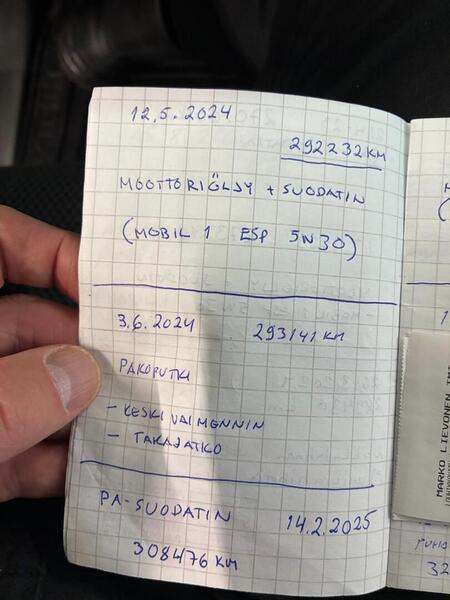 12.5.2024
292232 KM
MOOTTORIÖLJY + SUODATIN
(MOBIL 1 ESP 5W30)
3.6.2024 293141 KM
PAKOPUTKI
- KESKIVAIMENNIN
- TAKAJATKO
PA-SUODATIN 14.2.2025
308476 KM
MARKO LIEVONEN TMI